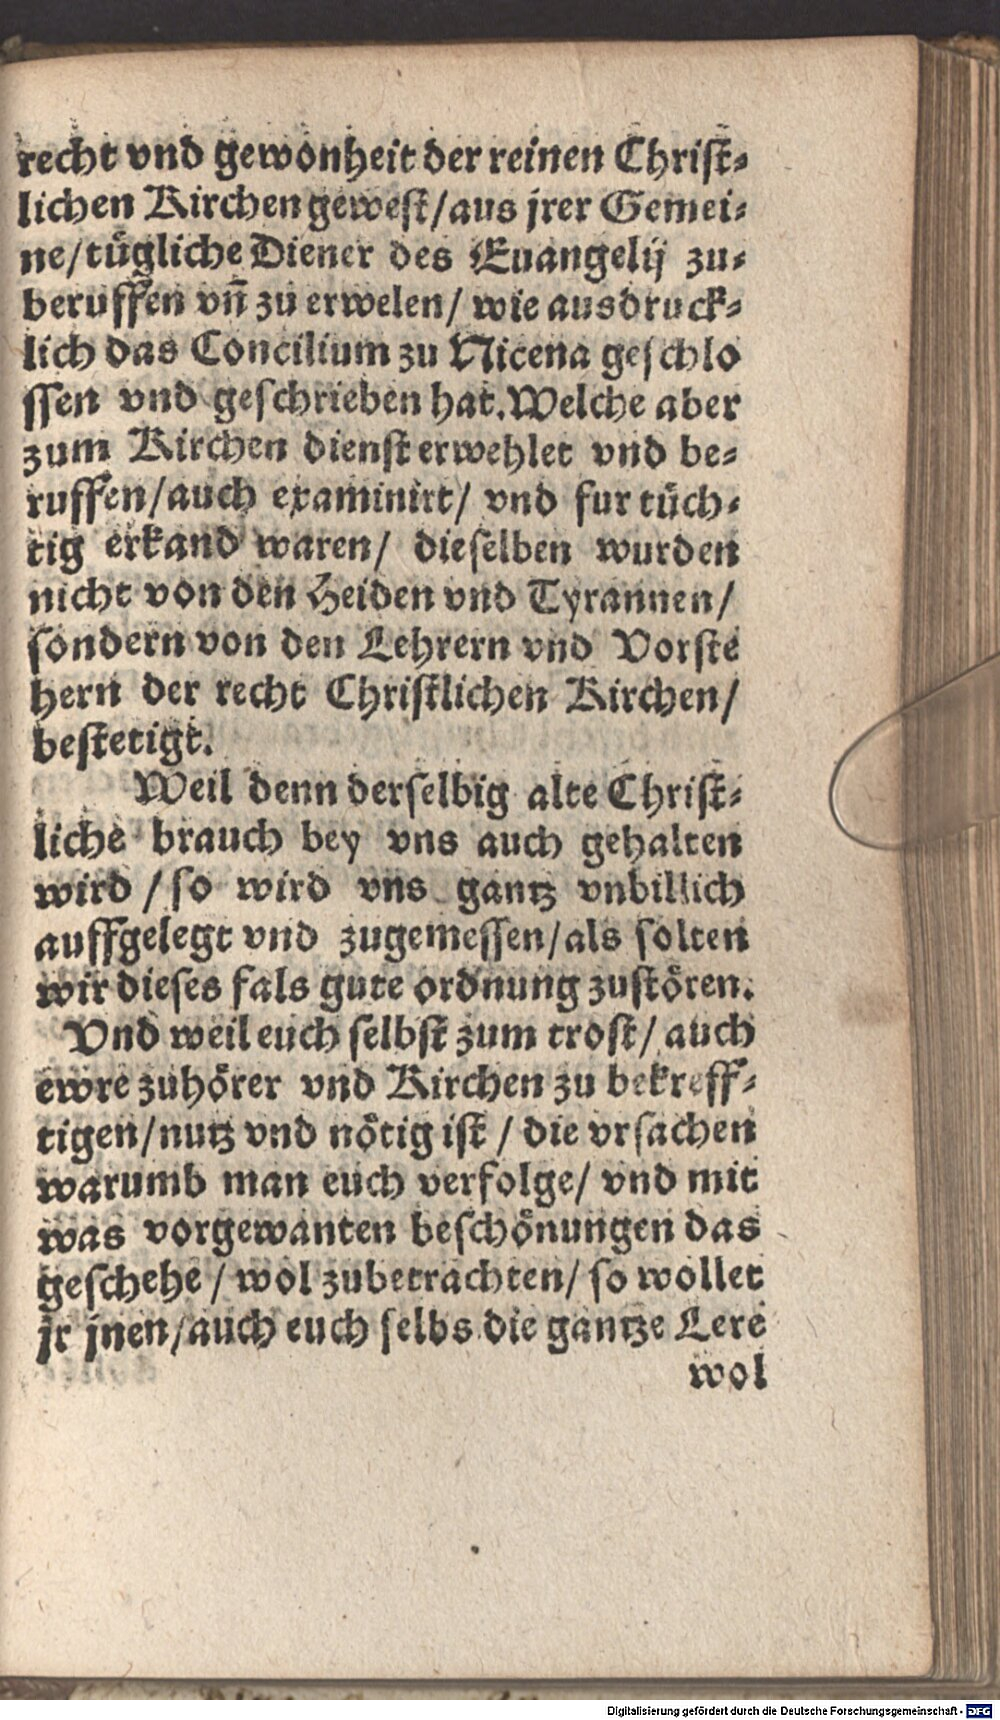 recht vnd gewonheit der reinen Christ-
lichen Kirchen gewest/aus jrer Gemei-
ne/tügliche Diener des Euangelij zu-
beruffen vñ zu erwelen/ wie ausdruck-
lich das Concilium zu Nicena geschlo
ssen vnd geschrieben hat. Welche aber
zum Kirchen dienst erwehlet vnd be-
ruffen/auch examinirt/ vnd fur tüch-
tig erkand waren/ dieselben wurden
nicht von den Heiden vnd Tyrannen/
sondern von den Lehrern vnd Vorste
hern der recht Christlichen Kirchen/
bestetigt.
Weil denn derselbig alte Christ-
liche brauch bey vns auch gehalten
wird / so wird vns gantz vnbillich
auffgelegt vnd zugemessen/als solten
wir dieses fals gute ordnung zustören.
Vnd weil euch selbst zum trost/ auch
ewre zuhörer vnd Kirchen zu bekreff-
tigen/nutz vnd nötig ist / die vrsachen
warumb man euch verfolge/ vnd mit
was vorgewanten beschönungen das
geschehe / wol zubetrachten/ so wollet
jr jnen/auch euch selbs die gantze Lere
wol
Digitalisierung gefördert durch die Deutsche Forschungsgemeinschaft - DFG